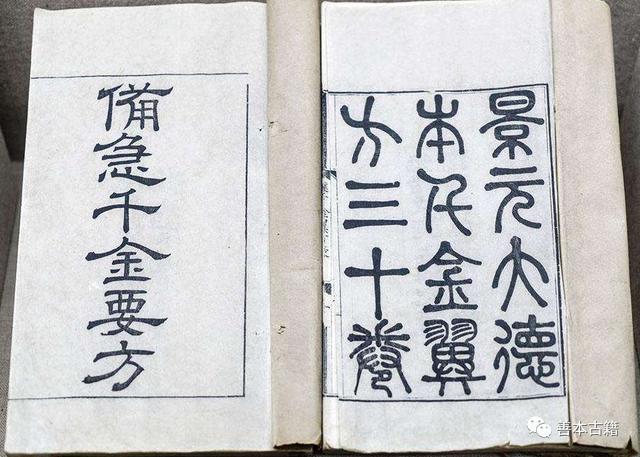 備急千金要方
景元大德
本千金翼
方三十卷
善本古籍